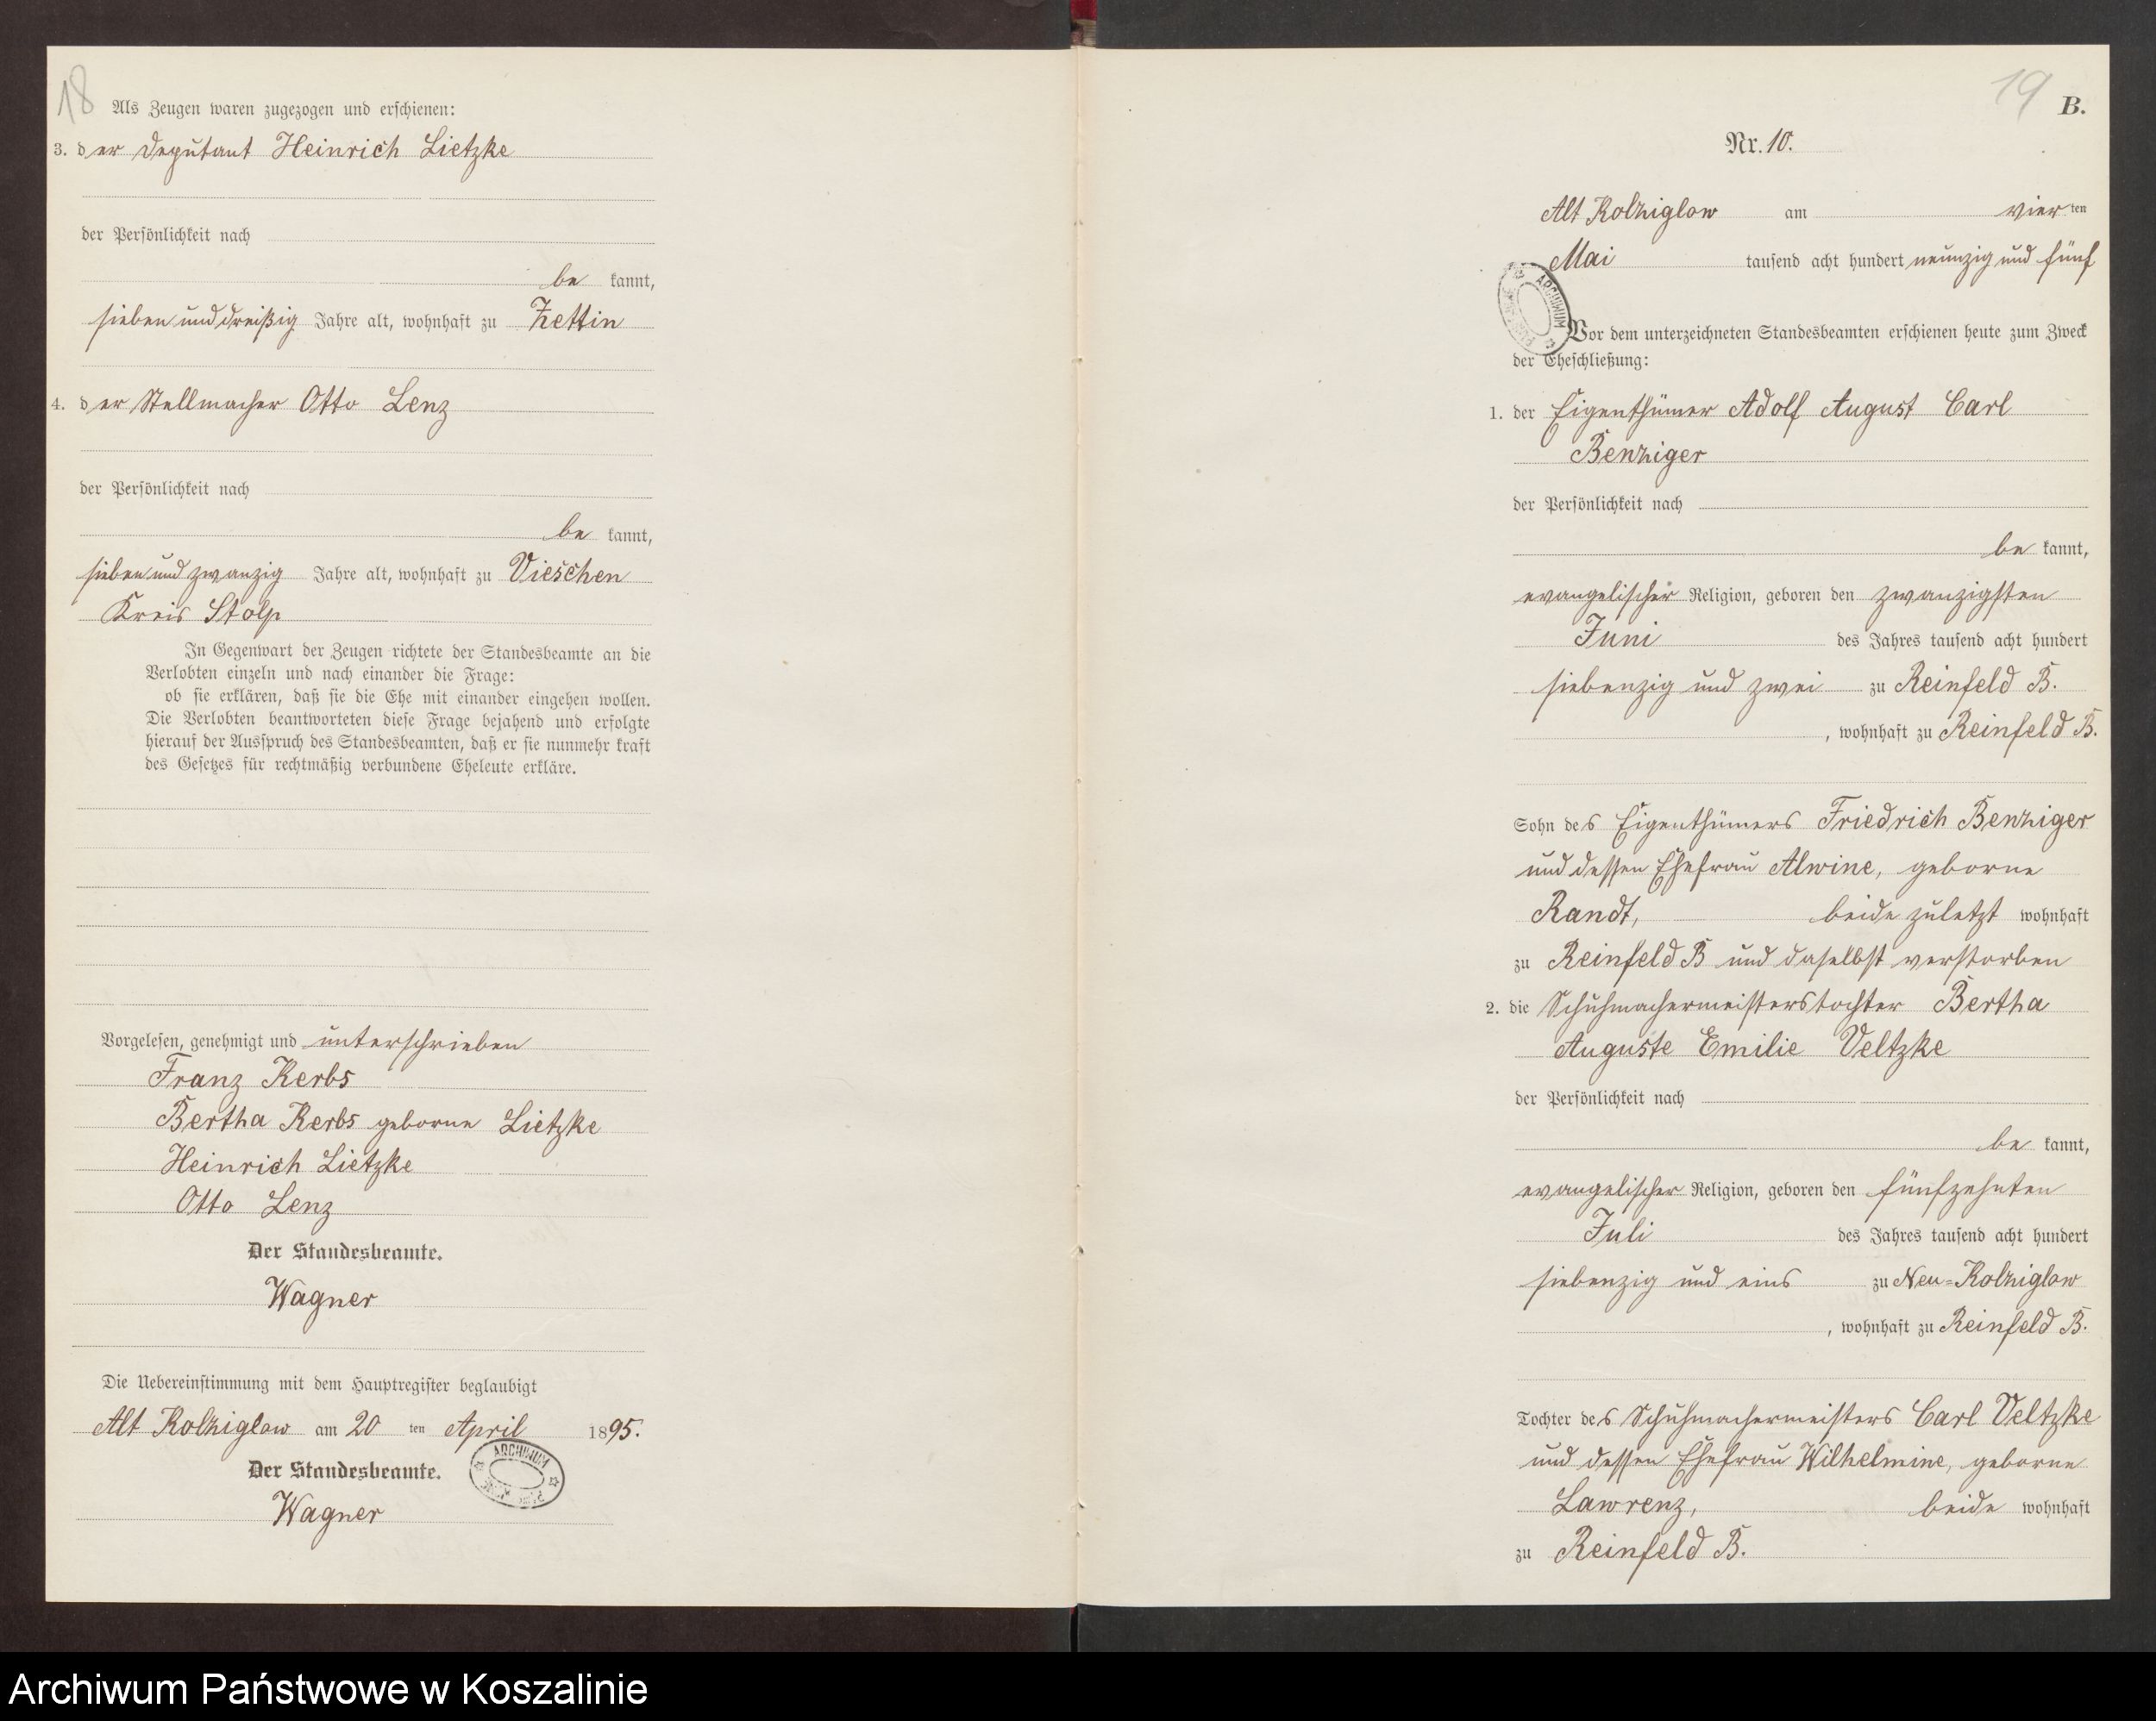 18
Als Zeugen waren zugezogen und erschienen:
3. der Deputant Heinrich Lietzke
der Persönlichkeit nach
be kannt,
sieben und dreißig Jahre alt, wohnhaft zu Zettin
4. der Stellmacher Otto Lenz
der Persönlichkeit nach
be kannt,
sieben und zwanzig Jahre alt, wohnhaft zu Vieschen
Kreis Stolp
In Gegenwart der Zeugen richtete der Standesbeamte an die
Verlobten einzeln und nach einander die Frage:
ob sie erklären, daß sie die Ehe mit einander eingehen wollen.
Die Verlobten beantworteten diese Frage bejahend und erfolgte
hierauf der Ausspruch des Standesbeamten, daß er sie nunmehr kraft
des Gesetzes für rechtmäßig verbundene Eheleute erkläre.
Vorgelesen, genehmigt und unterschrieben
Franz Kerbs
Bertha Kerbs geborne Lietzke
Heinrich Lietzke
Otto Lenz
Der Standesbeamte.
Wagner
Die Uebereinstimmung mit dem Hauptregister beglaubigt
Alt Kolziglow am 20 ten April 1895.
Der Standesbeamte.
Wagner
ARCHIWUM
19
B.
Nr. 10.
Alt Kolziglow am vier ten
Mai tausend acht hundert neunzig und fünf
ARCHIWUM
Vor dem unterzeichneten Standesbeamten erschienen heute zum Zweck
der Eheschließung:
1. der Eigenthümer Adolf August Carl
Benziger
der Persönlichkeit nach
be kannt,
evangelischer Religion, geboren den zwanzigsten
Juni des Jahres tausend acht hundert
siebenzig und zwei zu Reinfeld B.
, wohnhaft zu Reinfeld B.
Sohn des Eigenthümers Friedrich Benziger
und dessen Ehefrau Alwine, geborne
Randt, beide zuletzt wohnhaft
zu Reinfeld B und daselbst verstorben
2. die Schuhmachermeisterstochter Bertha
Auguste Emilie Veltzke
der Persönlichkeit nach
be kannt,
evangelischer Religion, geboren den fünfzehnten
Juli des Jahres tausend acht hundert
siebenzig und eins zu Neu=Kolziglow
, wohnhaft zu Reinfeld B.
Tochter des Schuhmachermeisters Carl Veltzke
und dessen Ehefrau Wilhelmine, geborne
Lawrenz, beide wohnhaft
zu Reinfeld B.
Archiwum Państwowe w Koszalinie